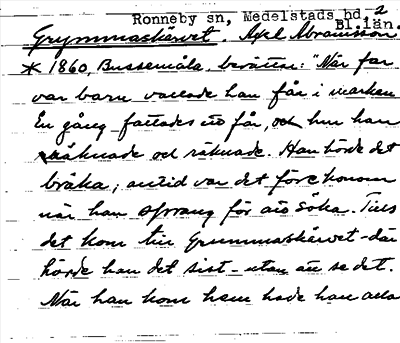 Ronneby sn, Medelstads hd 2
Bl.län.
Grymmaskärvet. Axel Abramsson
* 1860, Bussemåla, berättar: "När far
var barn vallade han får i marken
En gång fattades ett får, och hur han
räknade och räknade. Han hörde det
bräka; alltid var det före honom
när han sprang för att söka. Tills
det kom till Grummaskärvet - där
hörde han det sist - utan att se det.
När han kom hem hade han alla